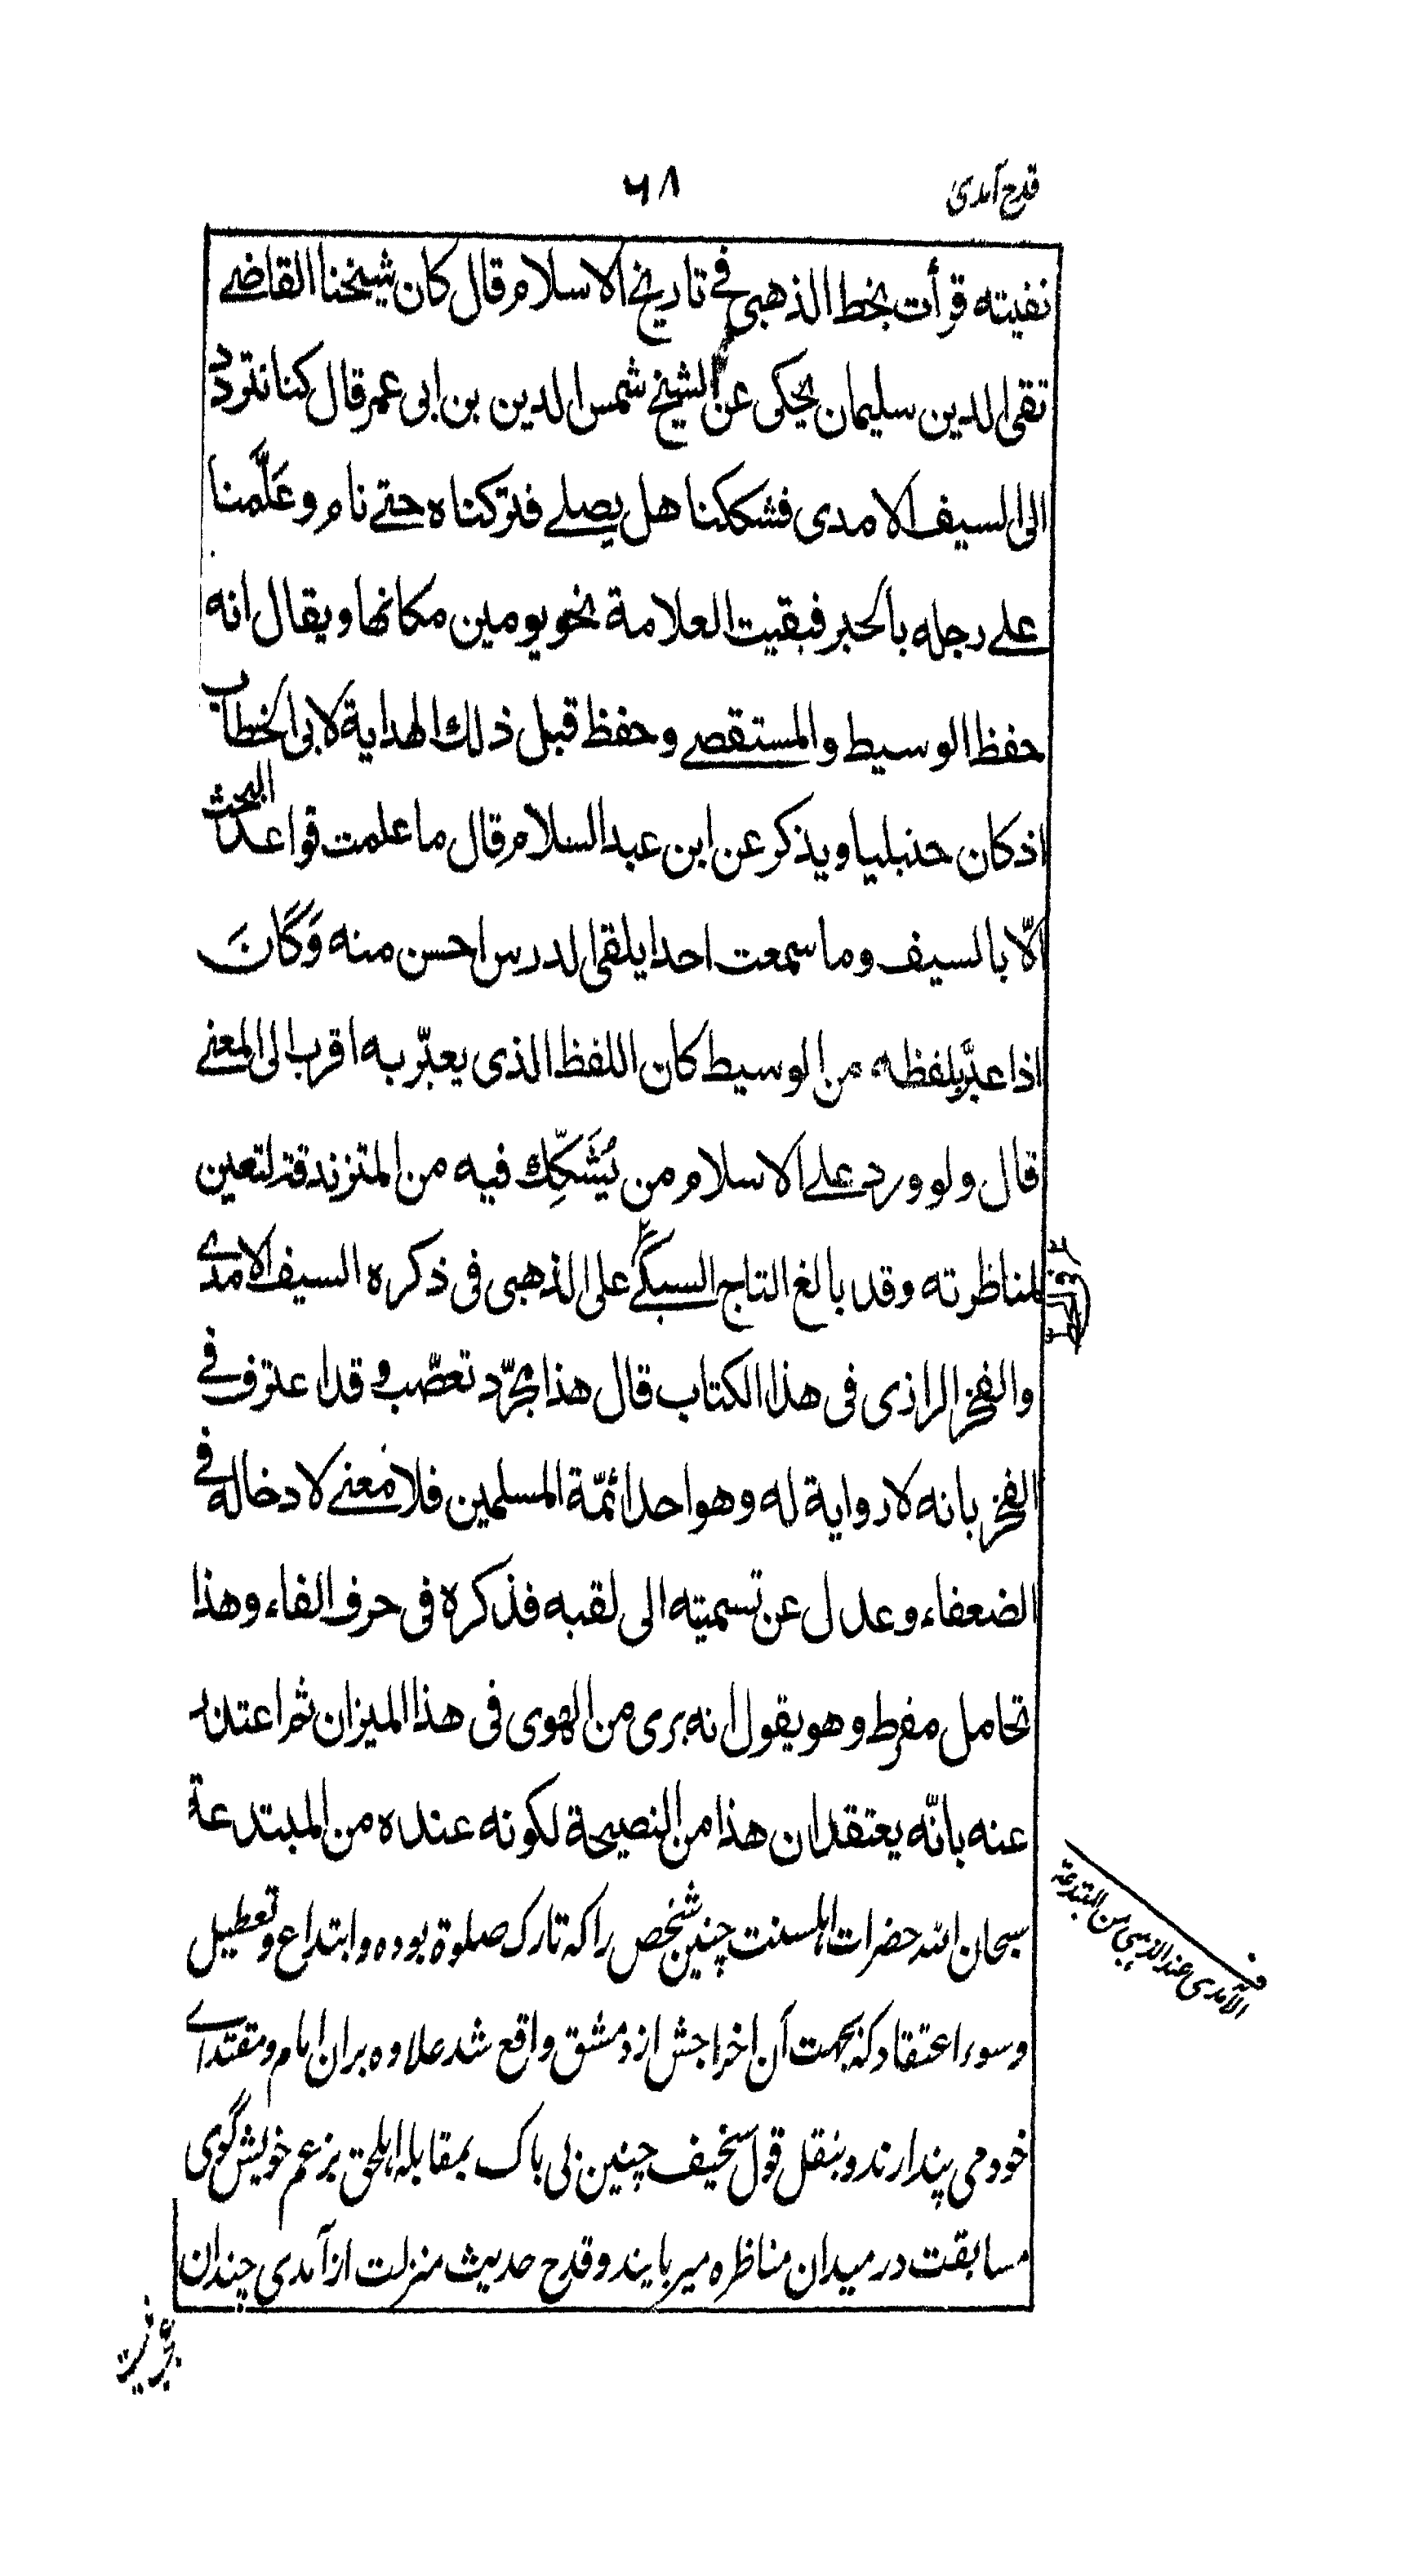 قدح آمدی
۶۸
نفیته قرأت بخط الذهبی فے تاریخ الاسلام قال کان شیخنا القاضے
تقی الدین سلیمان یحکی عن الشیخ شمس الدین بن ابی عمر قال کنا نتردد
الی السیف الامدی فشککنا هل یصلے فترکناه حتے نام وعَلَّمنا
علے رجله بالحبر فبقیت العلامة نحو یومین مکانها ویقال انه
حفظ الوسیط والمستقصے وحفظ قبل ذلك الهدایة لابی الخطاب
اذ کان حنبلیا ویذکر عن ابن عبد السلام قال ما علمت قواعد البحث
الّا بالسیف وما سمعت احدا یلقی الدرس احسن منه وَکَانَ
اذا عبَّر بلفظه من الوسیط کان اللفظ الذی یعبّر به اقرب الی المعنے
قال ولو ورد علے الاسلام من یُشَکِّك فیه من المتزندقة لتعین
لمناظرته وقد بالغ التاج السبکے علی الذهبی فی ذکره السیف الامدے
والفخر الرازی فی هذا الکتاب قال هذا مجرّد تعصّب وقد اعترف فے
الفخر بانه لا روایة له وهو احد ائمّة المسلمین فلا معنے لادخاله فے
الضعفاء وعدل عن تسمیته الی لقبه فذکره فی حرف الفاء وهذا
تحامل مفرط وهو یقول انه بری من الهوی فی هذا المیزان ثم اعتذر
عنه بانّه یعتقد ان هذا من النصیحة لکونه عنده من المبتدعة
الآمدی عند الذهبی من المبتدعة
سبحان الله حضرات اهلسنت چنین شخص را که تارک صلوة بوده و ابتداع و تعطیل
و سوء اعتقاد که بجهت آن اخراجش از دمشق واقع شد علاوه بران امام و مقتداے
خود می پندارند و بنقل قول سخیف چنین بی باک بمقابله اهلحق بزعم خویش گوی
مسابقت در میدان مناظره میربایند و قدح حدیث منزلت از آمدی چندان